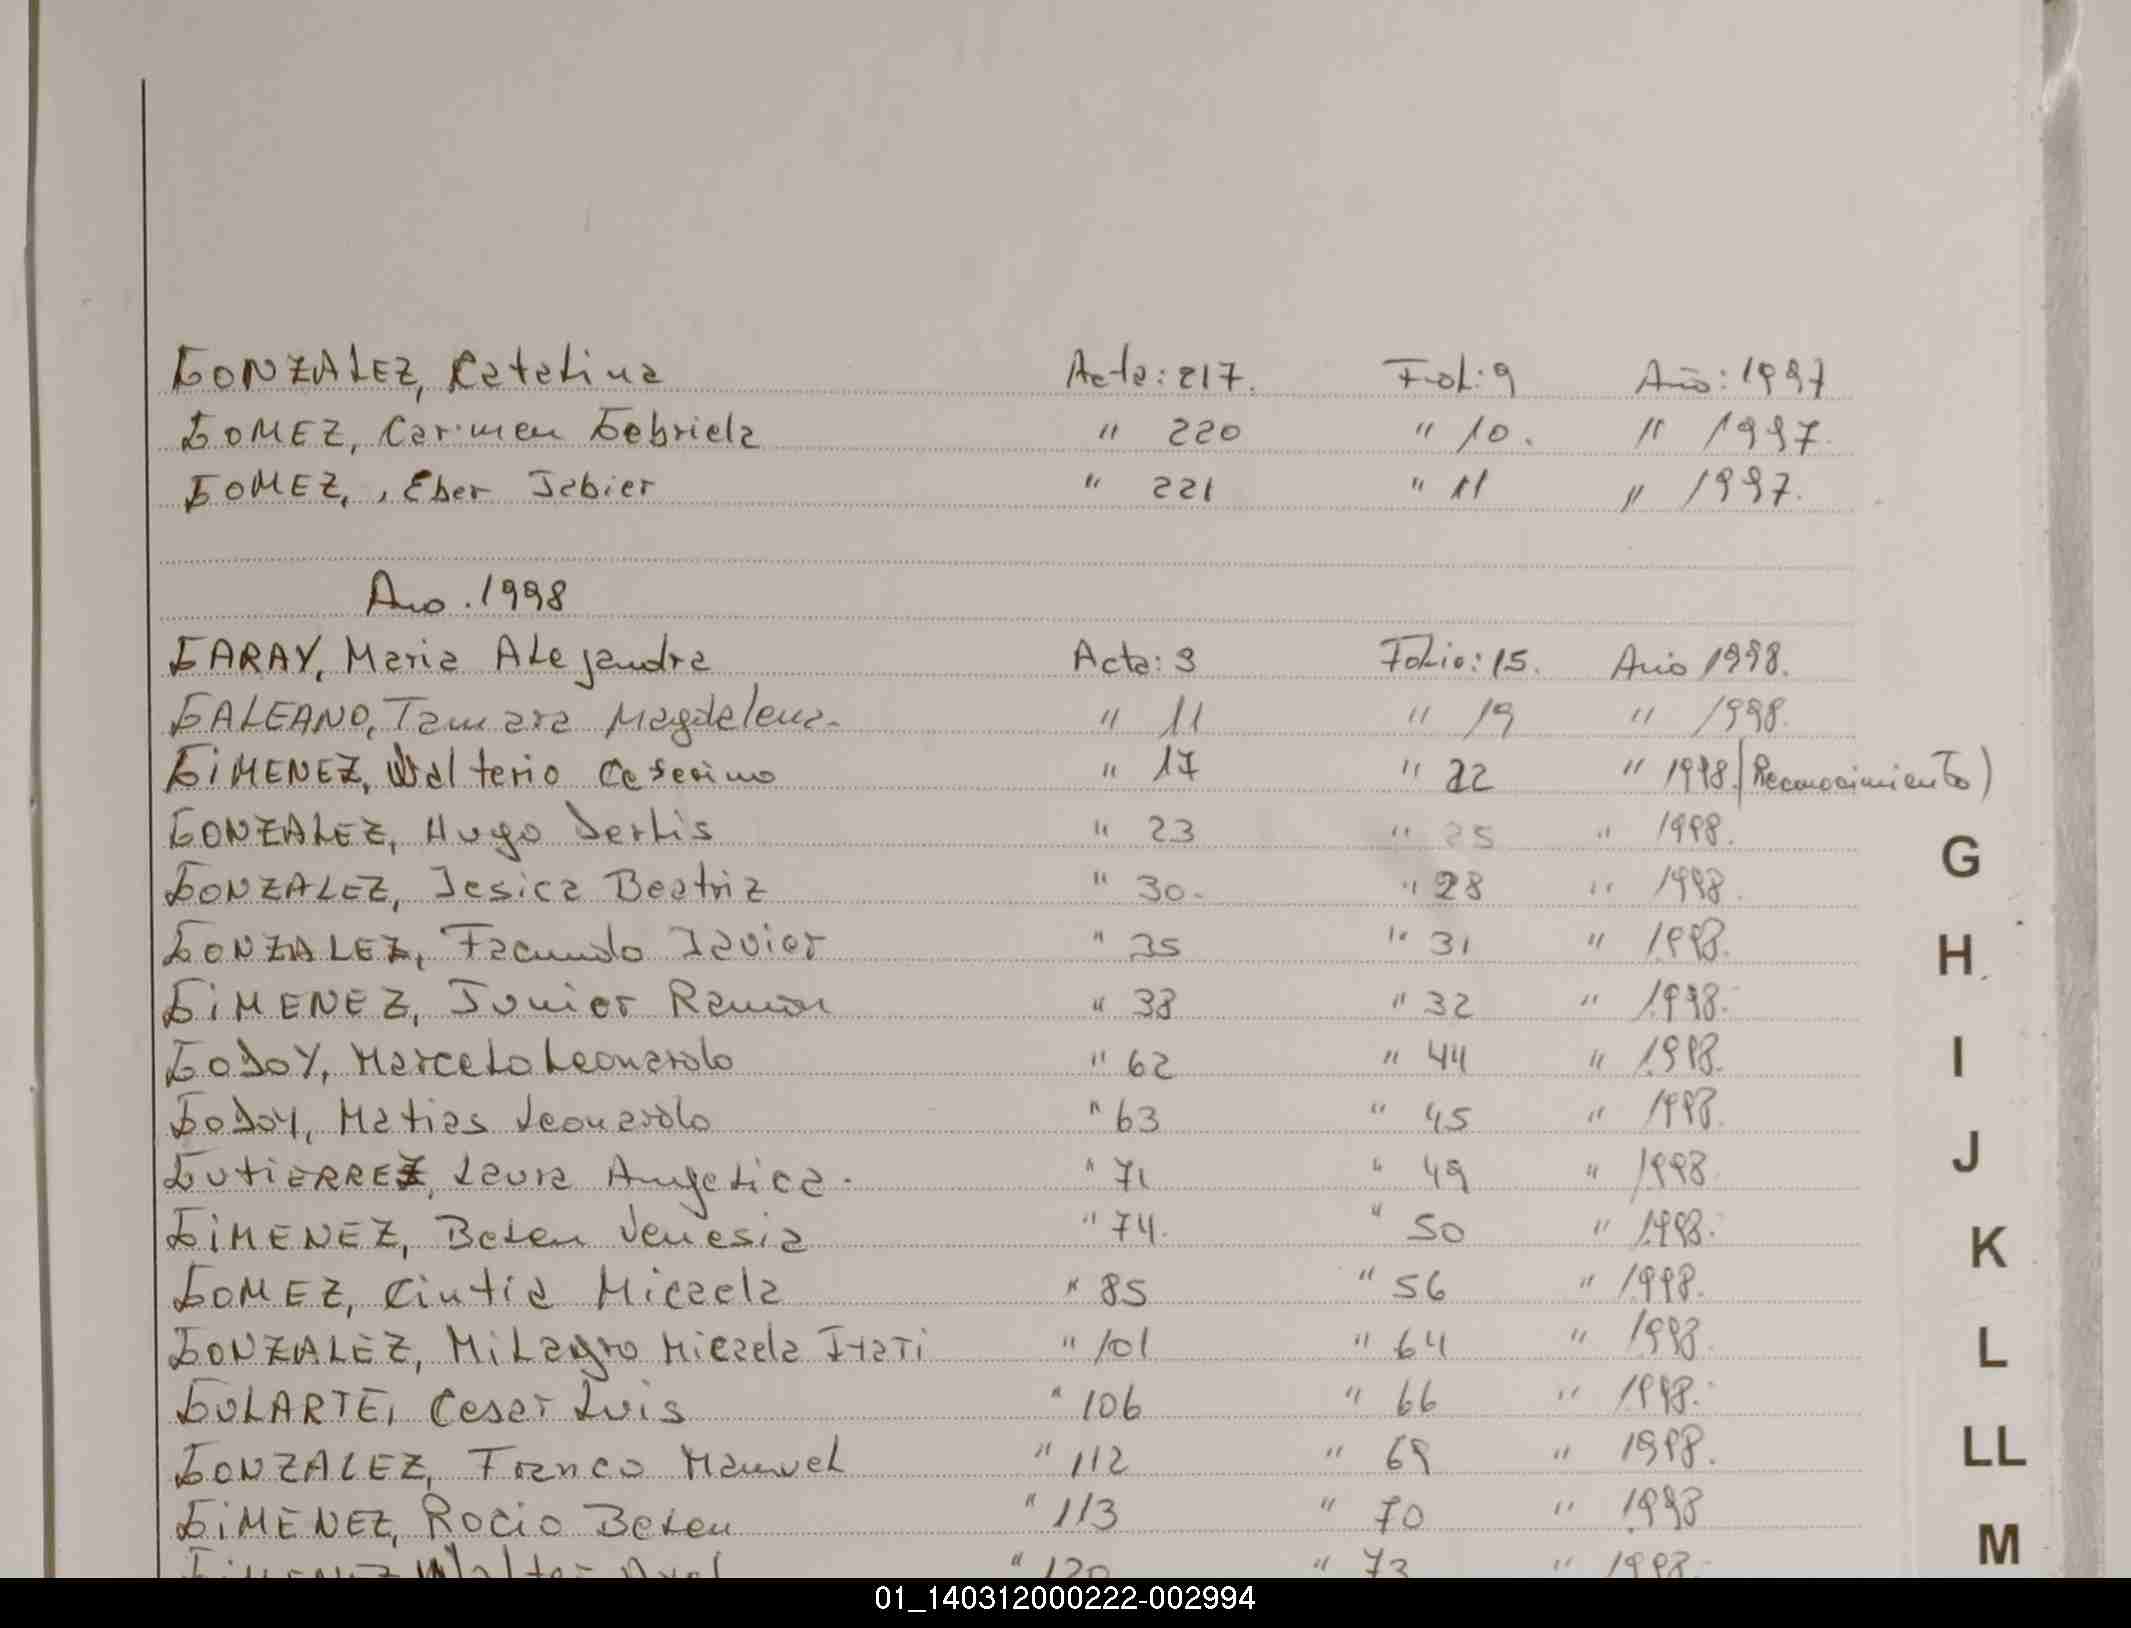 GONZALEZ, Catalina Acta: 217. Fol: 9 Año: 1997
GOMEZ, Carmen Gabriela " 220 " 10. " 1997.
GOMEZ, , Eber Jabier " 221 " 11 " 1997.
Año. 1998
GARAY, Maria Alejandra Acta: 3 Folio: 15. Año 1998.
GALEANO, Tamara Magdalena. " 11 " 19 " 1998.
GiMENEZ, Walterio Ceferino " 17 " 22 " 1998. (Reconocimiento)
GONZALEZ, Hugo Derlis " 23 " 25 " 1998.
GONZALEZ, Jesica Beatriz " 30. " 28 " 1998.
GONZALEZ, Facundo Javier " 35 " 31 " 1998.
GiMENEZ, Junior Ramon " 38 " 32 " 1998.
GODOY, Marcelo Leonardo " 62 " 44 " 1998.
GODOY, Matias Leonardo " 63 " 45 " 1998.
GUTiERREZ, Laura Angelica. " 71 " 49 " 1998.
GiMENEZ, Belen Venesia " 74. " 50 " 1998.
GOMEZ, Cintia Micaela " 85 " 56 " 1998.
GONZALEZ, Milagro Micaela Itati " 101 " 64 " 1998.
GULARTE, Cesar Luis " 106 " 66 " 1998.
GONZALEZ, Franco Manuel " 112 " 69 " 1998.
GiMENEZ, Rocio Belen " 113 " 70 " 1998
GiMENEZ Walter Axel " 120 " 73 " 1998.
G
H
I
J
K
L
LL
M
01_140312000222-002994